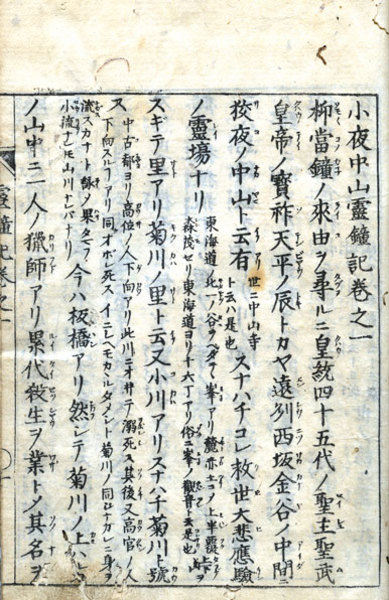 小夜中山靈鐘記卷之一
抑當鐘ノ來由ヲ尋ルニ皇統四十五代ノ聖主聖武
皇帝ノ寶祚天平ノ辰トカヤ遠列西坂金谷ノ中間ニ
狡夜ノ中山ト云有
世ニ中山寺
ト云ハ是也
スナハチコレ救世大悲應驗
ノ靈場ナリ
東海道ノ北一谷ヲヘダテヽ峯アリ麓亦
森茂セリ東海道ヨリ十六丁アリ俗ニ峯ノ觀音ト云是也
スギテ里アリ菊川ノ里ト云又小川アリスナハチ菊川ト號
ス
中古都ヨリ高位ノ人下向アリ此川ニオヰテ溺死ス其後又高官ノ人
下向スルフアリ同オボレ死スイニシヘモカヽルタメシト菊川ノ同ヒナガレニ身ヲ
流スカナト詠ノ果タマフ
小流ナレモ山川ナレバナリ
今ハ板橋アリ然シテ菊川ノ上
ノ山中ニ一人ノ獵師アリ累代殺生ヲ業トメ其名ヲ
靈鐘記卷之一